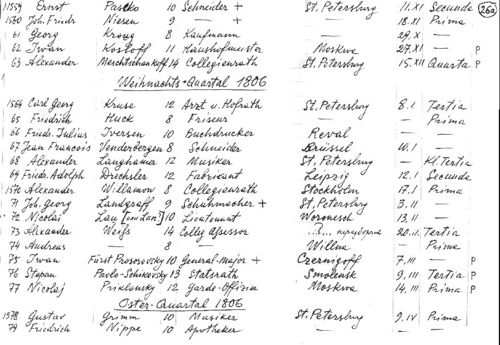 1559 Ernst Pascko 10 Schneider + St. Petersburg 11.XI Secunda 26a
1560 Joh. Friedr. Niesen 9 — + — 18.XI Prima
61 Georg Kroug 8 Kaufmann — 29.X —
62 Iwan Kosloff 11 Haushofmeister Moskwa 27.XI — P
63 Alexander Mechtschankoff 14 Collegienrath St. Petersburg 15.XII Quarta P
Weihnachts-Quartal 1806
1564 Carl Georg Kruse 12 Arzt u. Hofrath St. Petersburg 8.1 Tertia
65 Friedrich Huck 8 Friseur — — Prima
66 Friedr. Julius Iversen 10 Buchdrucker Reval — —
67 Jean Francois Venderbergen 8 Schneider Brüssel 10.1 —
68 Alexander Langhamer 12 Musiker St. Petersburg — Kl. Tertia
69 Friedr. Adolph Drechsler 12 Fabricant Leipzig 12.1 Secunda
1570 Alexander Willamow 8 Collegienrath Stockholm 17.1 Prima
71 Joh. Georg Landgraff 9 Schuhmacher + St. Petersburg 3.11 —
72 Nicolas Lau 10 Lieutenant Woronesch 13.11 —
73 Alexander Weiss 14 Colleg. Assessor ...?... 20.11 Tertia
74 Andreas — 8 — Willna — Prima
75 Iwan Fürst Prosorovsky 10 General-Major + Czernigoff 7.III — P
76 Stepan Pavlo-Schikovsky 13 Statsrath Smolensk 9.III Tertia P
77 Nicolaj Priklonsky 12 Garde-Offizier Moskwa 14.III Prima P
Oster-Quartal 1806
1578 Gustav Grimm 10 Musiker St. Petersburg 9.IV Prima
79 Friedrich Nippe 10 Apotheker — — —